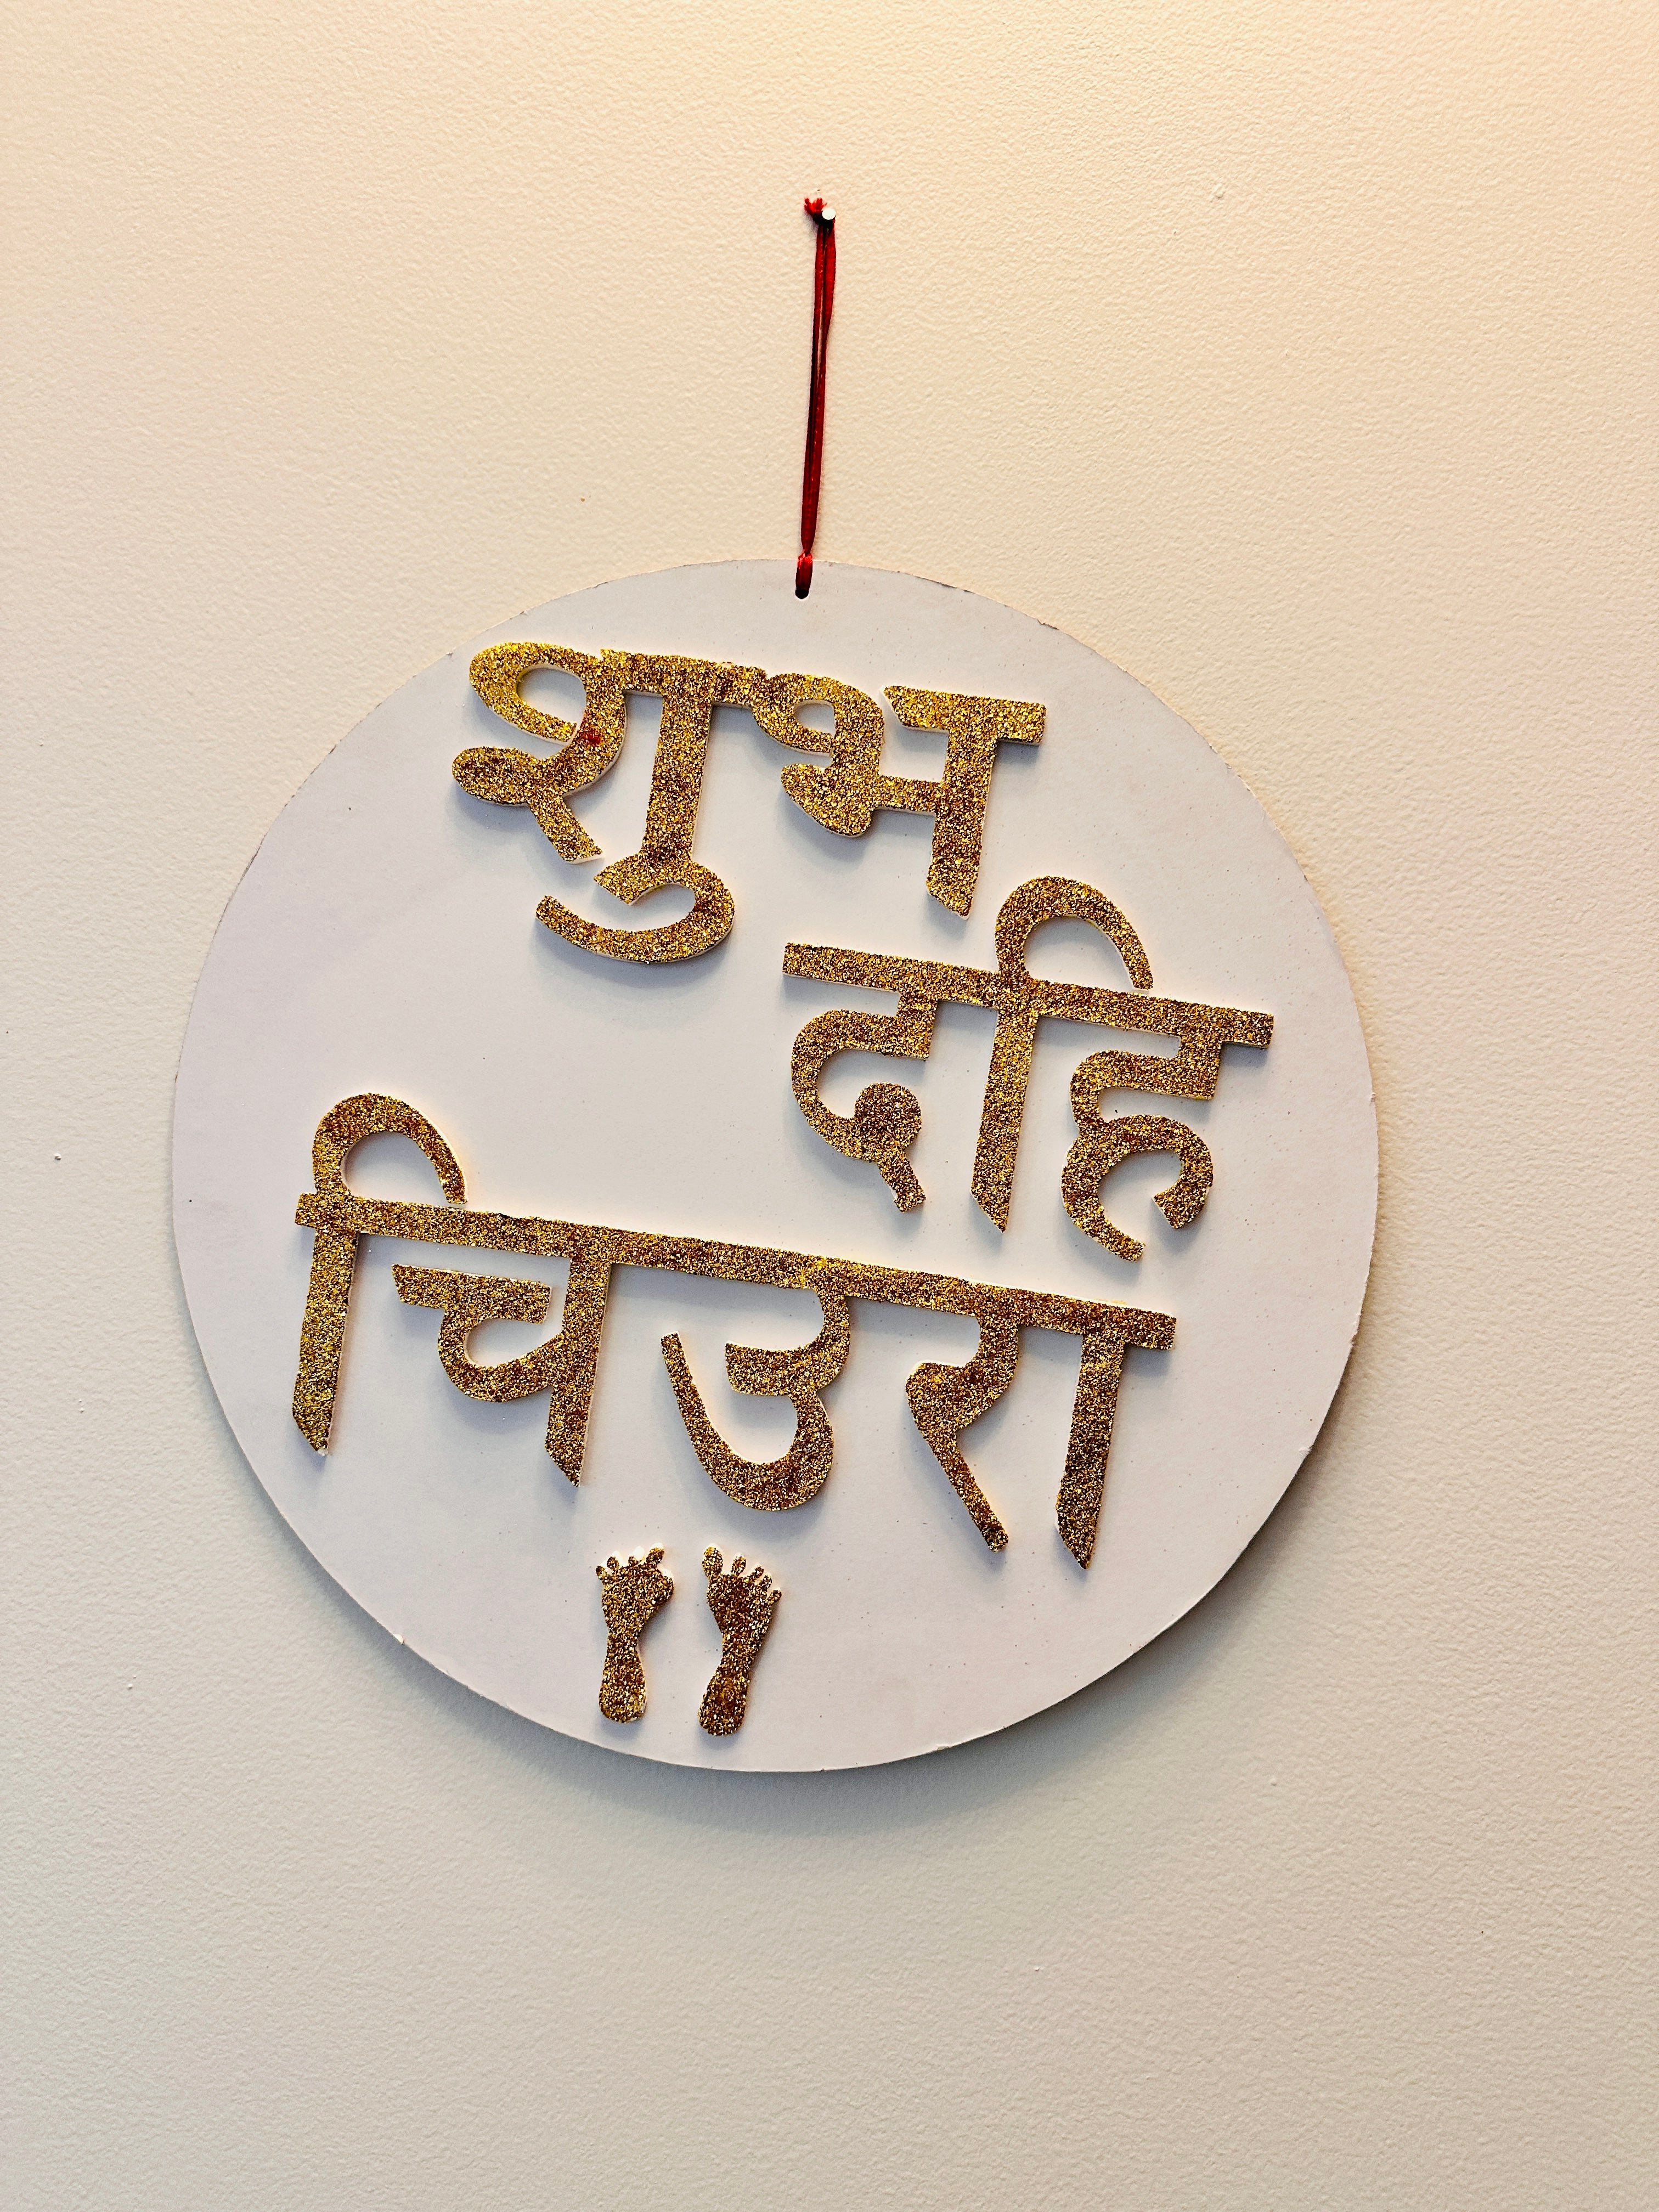 शुभ
दहि
चिउरा